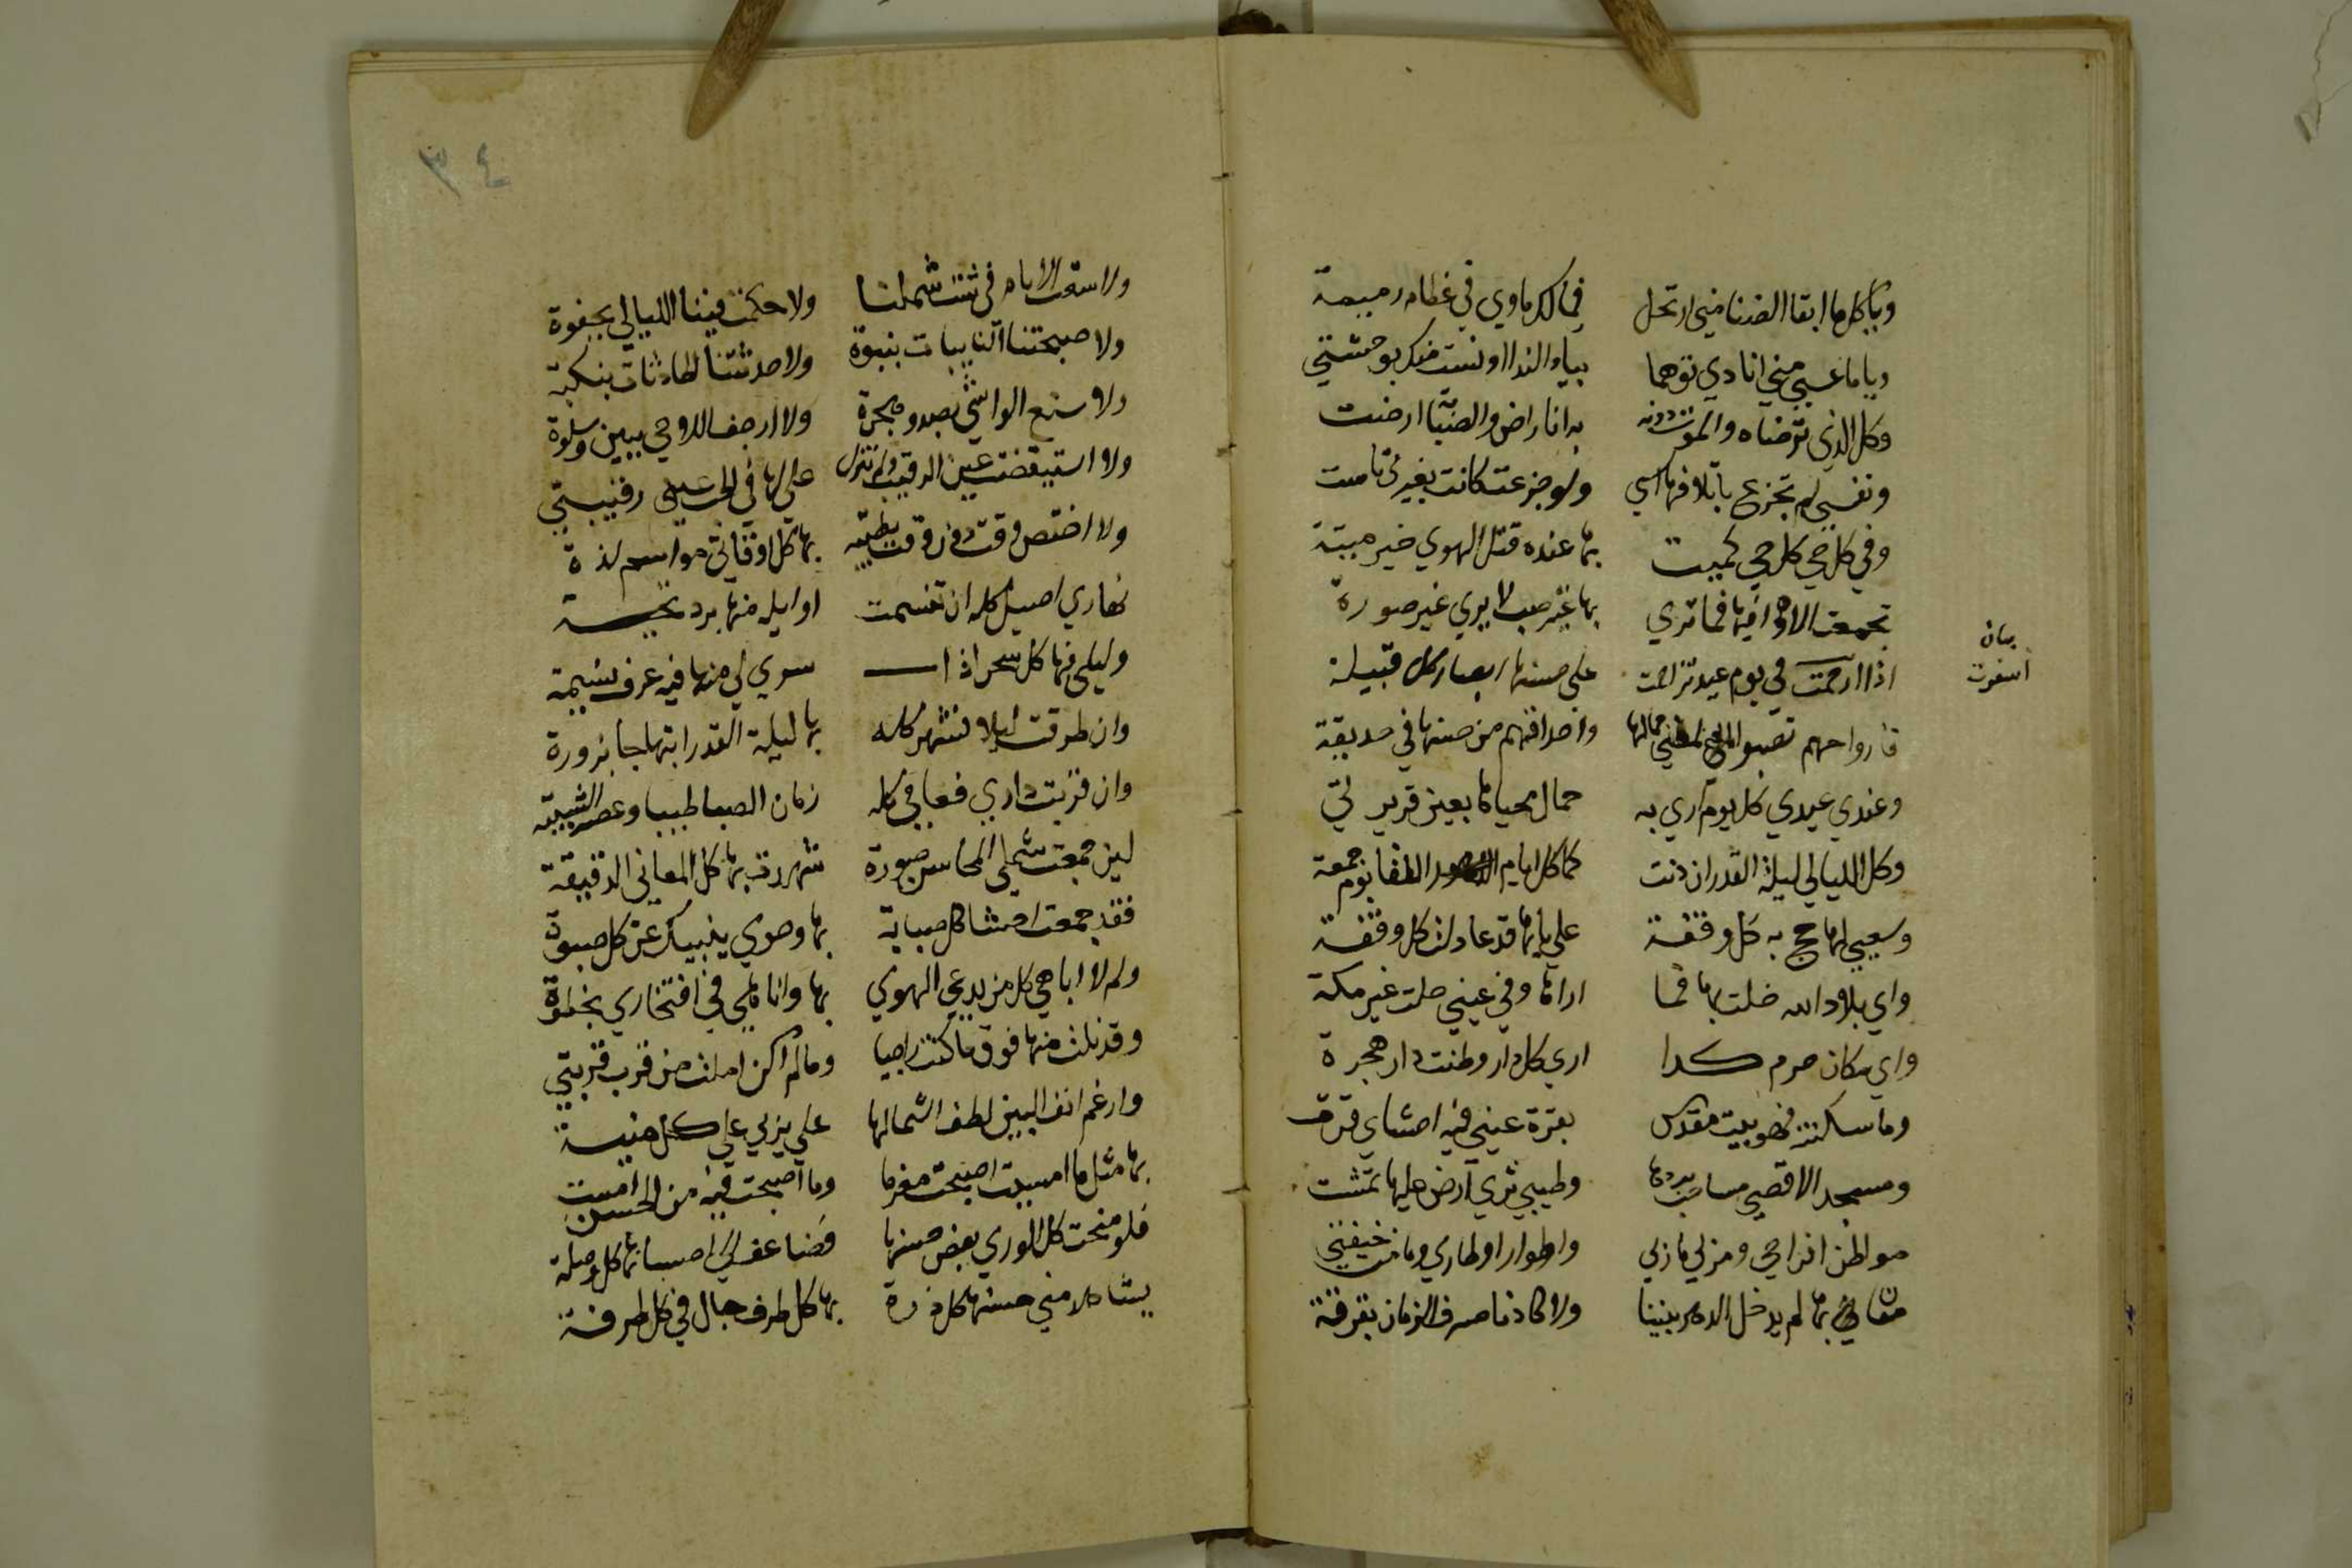 ويا كل ما ابقا الضنا مني ارتحل فمالك ماوي في عظام رميمة
ويا ما عسي مني انادي توهما بياء الندا اونست منك بوحشتي
وكل الذي ترضاه والموت دونه به انا راض والصبابة ارضت
ونفسي لم تجزع باتلافها اسي ولو جزعت كانت بغيري تاست
وفي كل حي كل حي كميت بها عنده قتل الهوي خير ميتة
تجمعت الاهوا فيها فما تري بها غير صب لا يري غير صبوة
اذا اسفرت في يوم عيد تزاحمت علي حسنها ابصار كل قبيلة
بيان
اسفرت
فارواحهم تصبو لمعني جمالها واحداقهم من حسنها في حديقة
وعندي عيدي كل يوم اري به جمال محياها بعين قريرتي
وكل الليالي ليلة القدر ان دنت كما كل ايام اللقا يوم جمعة
وسعيي لها حج به كل وقفة علي بابها قد عادلت كل وقفة
واي بلاد الله حلت بها فما اراها وفي عيني حلت غير مكة
واي مكان حرم كدا اري كل دار وطنت دار هجرة
وما سكنته فهو بيت مقدس بقرة عيني فيه احشاي قرت
ومسجد الاقصي مساحب بردها وطيبي ثري ارض عليها تمشت
مواطن افراحي ومربي ماربي واطوار اوطاري ومامن خيفتي
مغان بها لم يدخل الدهر بيننا ولا كادنا صرف الزمان بفرقة
٣٤
ولا سعت الايام في شت شملنا ولا حكمت فينا الليالي بجفوة
ولا صبحتنا النايبات بنبوة ولا حدثتنا الحادثات بنكبة
ولا شنع الواشي بصد وهجرة ولا ارجف اللاحي ببين وسلوة
ولا استيقضت عين الرقيب ولم تزل علي لها في الحب عيني رقيبتي
ولا اختص وقت دون وقت بطيبة بها كل اوقاتي مواسم لذة
نهاري اصيل كله ان تنسمت اوايله منها برد تحية
وليلي فيها كل سحر اذا سري لي منها فيه عرف نسيمة
وان طرقت ليلا فشهر كله بها ليلة القدر ابتهاجا بزورة
وان قربت داري فعامي كله زمان الصبا طيبا وعصر الشبيبة
لين جمعت شمل المحاسن صورة شهدت بها كل المعاني الدقيقة
فقد جمعت احشاي كل صبابة بها وجوي ينبيك عن كل صبوة
ولم لا اباهي كل من يدعي الهوي بها واناهي في افتخاري بحظوة
وقد نلت منها فوق ما كنت راجيا وما لم اكن املت من قرب قربتي
وارغم انف البين لطف اشتمالها علي بزي علي كل منية
بها مثل ما امسيت اصبحت مغرما وما اصبحت فيه من الحسن امست
فلو منحت كل الوري بعض حسنها
يشاهد مني حسنها كل ذرة بها كل طرف جال في كل طرفة